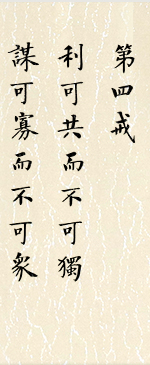 第四戒
利可共而不可獨
謀可寡而不可眾